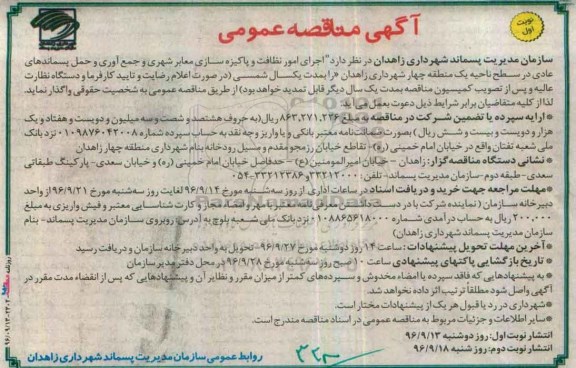 آگهی مناقصه عمومی
نوبت اول
سازمان مدیریت پسماند شهرداری زاهدان در نظر دارد "اجرای امور نظافت و پاکیزه سازی معابر شهری و جمع آوری و حمل پسماندهای
عادی در سطح ناحیه یک منطقه چهار شهرداری زاهدان" را بمدت یکسال شمسی (در صورت اعلام رضایت و تایید کارفرما و دستگاه نظارت
عالیه و پس از تصویب کمیسیون مناقصه بمدت یک سال دیگر قابل تمدید خواهد بود) از طریق مناقصه عمومی به شخصیت حقوقی واگذار نماید.
لذا از کلیه متقاضیان برابر شرایط ذیل دعوت بعمل می‌آید:
*ارایه سپرده یا تضمین شرکت در مناقصه به مبلغ ۸۶۳,۲۷۱,۲۳۶ ریال(به حروف هشتصد و شصت و سه میلیون و دویست و هفتاد و یک
هزار و دویست و بیست و شش ریال) بصورت ضمانتنامه معتبر بانکی و یا واریز وجه نقد به حساب سپرده شماره ۰۱۰۹۸۷۶۰۴۲۰۰۸ نزد بانک
ملی شعبه تفتان واقع در خیابان امام خمینی (ره)- تقاطع خیابان رزمجو مقدم و مسیل رودخانه بنام شهرداری منطقه چهار زاهدان
*نشانی دستگاه مناقصه گزار: زاهدان - خیابان امیرالمومنین (ع) - حدفاصل خیابان امام خمینی (ره) و خیابان سعدی- پارکینگ طبقاتی
سعدی-طبقه دوم-سازمان مدیریت پسماند- تلفن: ۳۳۲۱۲۰۰۰ و ۳۳۲۱۲۳۸۶-۰۵۴
*مهلت مراجعه جهت خرید و دریافت اسناد در ساعات اداری از روز سه شنبه مورخ ۹۶/۹/۱۴ لغایت روز سه‌شنبه مورخ ۹۶/۹/۲۱ از واحد
دبیرخانه سازمان (نماینده شرکت با در دست و کارت شناسایی معتبر و فیش واریزی به مبلغ
۲۰۰,۰۰۰ ریال به حساب درآمدی شماره ۰۱۰۸۸۶۵۶۱۸۰۰۰ نزد بانک ملی شعبه بلوچ به آدرس: روبروی سازمان مدیریت پسماند- بنام
سازمان مدیریت پسماند شهرداری زاهدان)
*آخرین مهلت تحویل پیشنهادات: ساعت ۱۴ روز دوشنبه مورخ ۹۶/۹/۲۷- تحویل به واحد دبیرخانه سازمان و دریافت رسید
*تاریخ بازگشایی پاکتهای پیشنهادی ساعت ۱۰ صبح روز سه‌شنبه مورخ ۹۶/۹/۲۸ در محل دفتر مدیر سازمان
*به پیشنهادهایی که فاقد سپرده یا امضاء مخدوش و سپرده‌های کمتر از میزان مقرر و نظایر آن و پیشنهادهایی که پس از انقضاء مدت مقرر در
آگهی واصل شود مطلقاً ترتیب اثر داده نخواهد شد.
*شهرداری در رد یا قبول هر یک از پیشنهادات مختار است.
*سایر اطلاعات و جزئیات مربوط به مناقصه عمومی در اسناد مناقصه مندرج است.
انتشار نوبت اول: روز دوشنبه ۹۶/۹/۱۳
انتشار نوبت دوم: روز شنبه ۹۶/۹/۱۸
روابط عمومی سازمان مدیریت پسماند شهرداری زاهدان